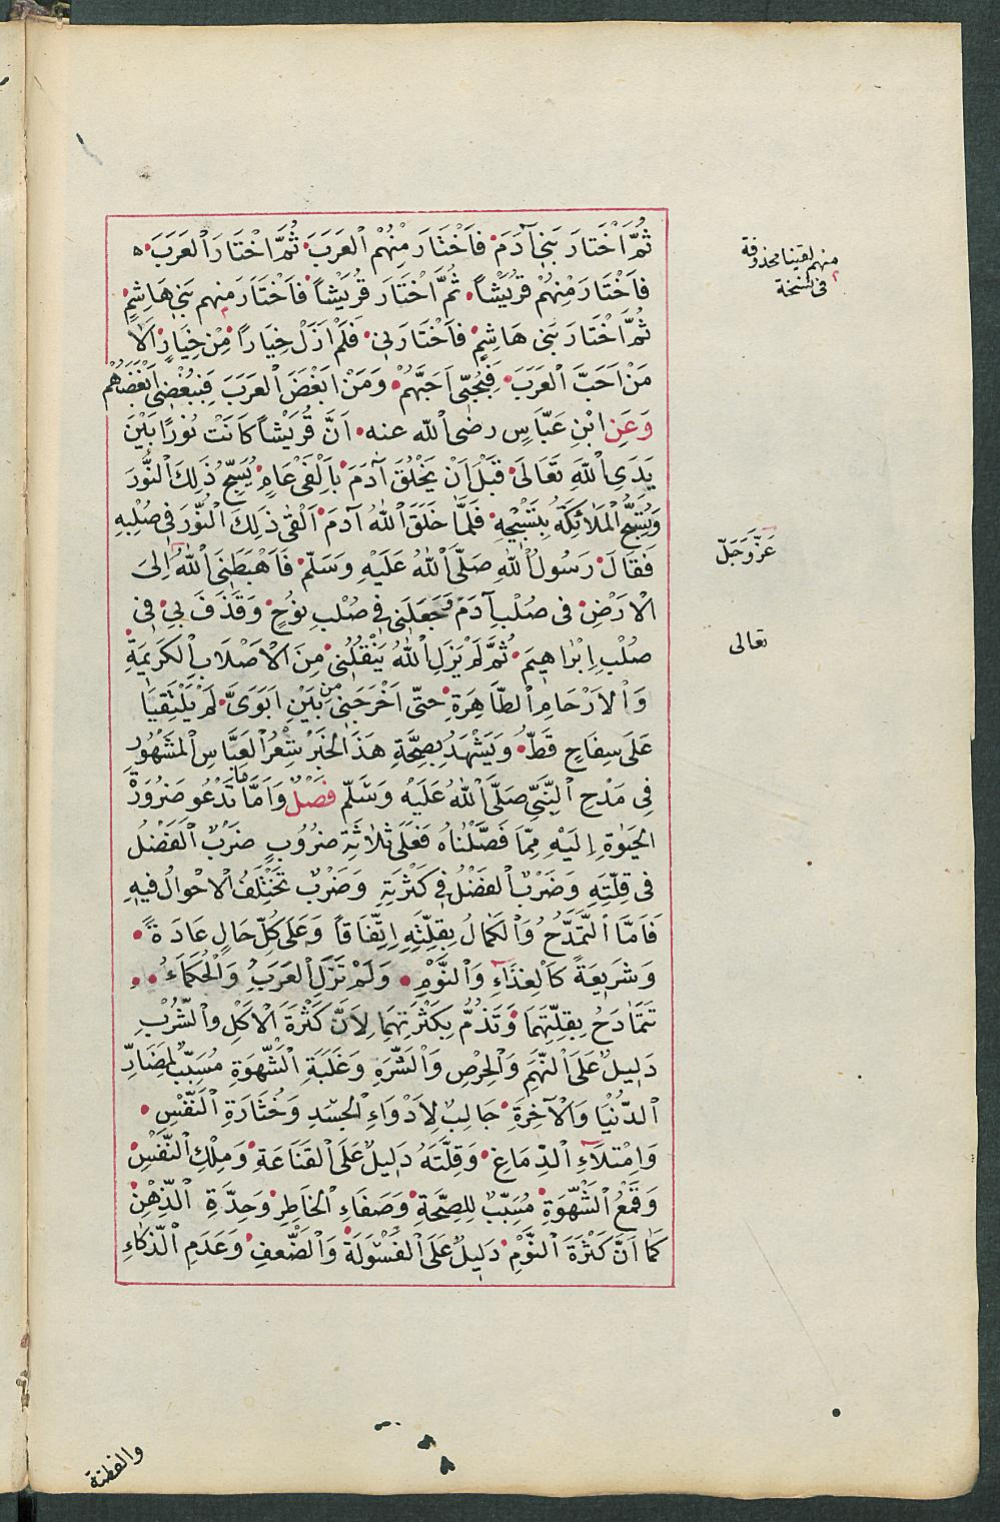 ثُمَّ اخْتَارَ بَنِي آدَمَ فَاخْتَارَ مِنْهُمُ الْعَرَبَ ثُمَّ اخْتَارَ الْعَرَبَ ه
فَاخْتَارَ مِنْهُمْ قُرَيْشاً ثُمَّ اخْتَارَ قُرَيْشاً فَاخْتَارَ منهم بَنِي هَاشِمٍ
ثُمَّ اخْتَارَ بَنِي هَاشِمٍ فَاخْتَارَنِي فَلَمْ اَزَلْ خِيَاراً مِنْ خِيَارٍ اَلَا
مَنْ اَحَبَّ الْعَرَبَ فَبِحُبِّي اَحَبَّهُمْ وَمَنْ اَبْغَضَ الْعَرَبَ فَبِبُغْضِي اَبْغَضَهُمْ
وَعَنِ ابْنِ عَبَّاسٍ رضى الله عنه اَنَّ قُرَيْشاً كَانَتْ نُورًا بَيْنَ
يَدَيِ اللهِ تَعَالَى قَبْلَ اَنْ يَخْلُقَ آدَمَ بِاَلْفَيْ عَامٍ يُسَبِّحُ ذٰلِكَ النُّورَ
وَيُسَبِّحُ الْمَلَائِكَةُ بِتَسْبِيْحِهِ فَلَمَّا خَلَقَ اللهُ آدَمَ اَلْقٰى ذٰلِكَ النُّورَ فِي صُلْبِهِ
فَقَالَ رَسُولُ اللهِ صَلَّى اللهُ عَلَيْهِ وَسَلَّمَ فَاَهْبَطَنِيَ اللهُ اِلَى
الْاَرْضِ فى صُلْبِ آدَمَ وَجَعَلَنِي فِي صُلْبِ نوُحٍ وَقَذَفَ بِي فِى
صُلْبِ اِبْرَاهِيمَ ثُمَّ لَمْ يَزَلِ اللهُ يَنْقُلُنِي مِنَ الْاَصْلَابِ الْكَرِيمَةِ
وَالْاَرْحَامِ الطَّاهِرَةِ حتّى اَخْرَجَنِي مِنْ بَيْنِ اَبَوَيَّ لَمْ يَلْتَقِيَا
عَلَى سِفَاحٍ قَطُّ وَيَشْهَدُ بِصِحَّةِ هَذَا الْخَبَرِ شِعْرُ الْعَبَّاسِ الْمَشْهُورِ
فِي مَدْحِ النَّبِيِّ صَلَّى اللهُ عَلَيْهِ وَسَلَّمَ فَصْلٌ وَاَمَّا مَا تَدْعُو ضَرُورَةُ
الْحَيٰوةِ اِلَيْهِ مِمَّا فَصَّلْنَاهُ فَعَلَى ثَلَاثَةِ ضُرُوبٍ ضَرْبٌ الْفَضْلُ
فى قِلَّتِهِ وَضَرْبٌ الْفَضْلُ فِي كَثْرَتِهِ وَضَرْبٌ تَخْتَلِفُ الْاَحْوَالُ فِيهِ
فَاَمَّا التَّمَدُّحُ وَالْكَمَالُ بِقِلَّتِهِ اِتِّفَاقاً وَعَلَى كُلِّ حَالٍ عَادَةً
وَشَرِيعَةً كَالْغِذَاءِ وَالنَّوْمِ وَلَمْ تَزَلِ الْعَرَبُ وَالْحُكَمَاءُ
تَتَمَادَحُ بِقِلَّتِهِمَا وَتَذُمُّ بِكَثْرَتِهِمَا لِاَنَّ كَثْرَةَ الْاَكْلِ وَالشُّرْبِ
دَلِيلٌ عَلَى النَّهَمِ وَالْحِرْصِ وَالشَّرَهِ وَغَلَبَةِ الشَّهْوَةِ مُسَبِّبٌ لِمَضَارِّ
الدُّنْيَا وَالْآخِرَةِ جَالِبٌ لِاَدْوَاءِ الْجَسَدِ وَخُثَارَةِ النَّفْسِ
وَامْتِلَاءِ الدِّمَاغِ وَقِلَّتَهُ دَلِيلٌ عَلَى الْقَنَاعَةِ وَمِلْكِ النَّفْسِ
وَقَمْعُ الشَّهْوَةِ مُسَبِّبٌ لِلصِّحَّةِ وَصَفَاءِ الْخَاطِرِ وَحِدَّةِ الذِّهْنِ
كَمَا اَنَّ كَثْرَةَ النَّوْمِ دَلِيلٌ عَلَى الْفُسُولَةِ وَالضَّعْفِ وَعَدَمِ الذَّكَاءِ
والفطنة
منهم لقينا محذوفة
فى نسخة
عَزَّ وَجَلّ
تعالى